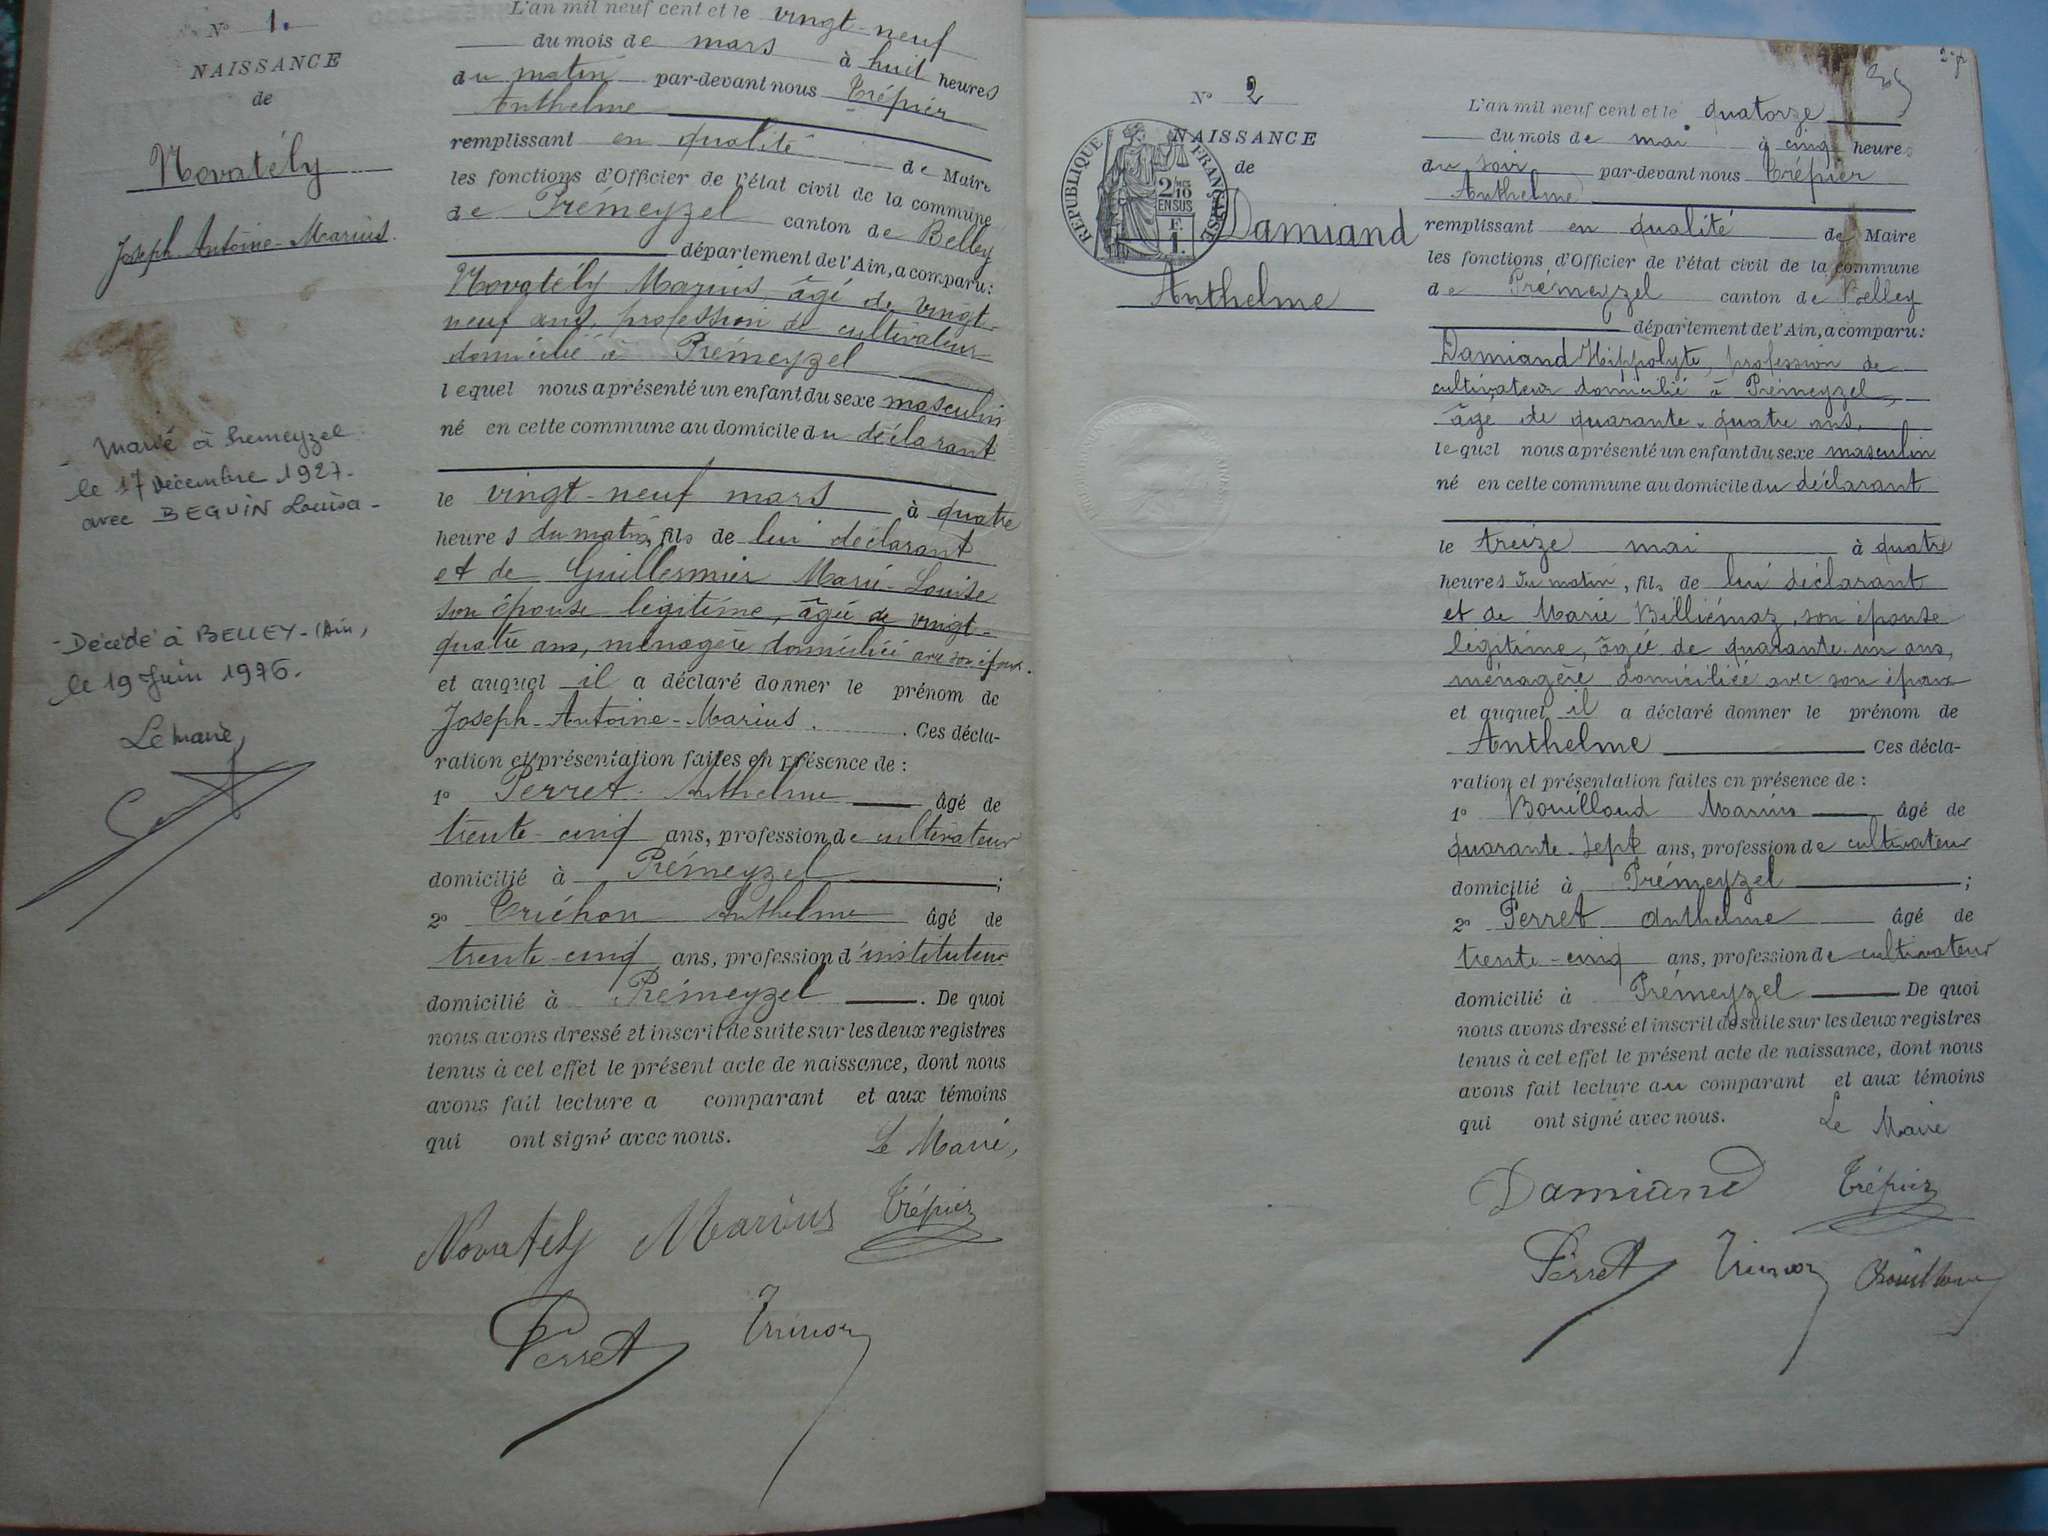 N° 1.
NAISSANCE
de
Novatély
Joseph Antoine-Marius.
- Marié à Premeyzel
le 17 Décembre 1927.
avec BEGUIN Louisa -
- Décédé à BELLEY - (Ain)
le 19 Juin 1976.
Le Maire,
L'an mil neuf cent et le vingt-neuf
du mois de mars à huit heures
du matin par-devant nous Trépier
Anthelme
remplissant en qualité de Maire
les fonctions d'Officier de l'état civil de la commune
de Prémeyzel canton de Belley
département de l'Ain, a comparu:
Novatély Marius, âgé de vingt-
neuf ans, profession de cultivateur
domicilié à Prémeyzel
lequel nous a présenté un enfant du sexe masculin
né en cette commune au domicile du déclarant
le vingt-neuf mars à quatre
heures du matin, fils de lui déclarant
et de Guillermier Marie-Louise
son épouse légitime, âgée de vingt-
quatre ans, ménagère domiciliée avec son époux.
et auquel il a déclaré donner le prénom de
Joseph-Antoine-Marius. Ces décla-
ration et présentation faites en présence de :
1° Perret Anthelme âgé de
trente-cinq ans, profession de cultivateur
domicilié à Prémeyzel ;
2° Anthelme âgé de
trente-cinq ans, profession d'instituteur
domicilié à Prémeyzel. De quoi
nous avons dressé et inscrit de suite sur les deux registres
tenus à cet effet le présent acte de naissance, dont nous
avons fait lecture a comparant et aux témoins
qui ont signé avec nous.
Le Maire,
Novately Marius Trépier
Perret
N° 2
NAISSANCE
de
REPUBLIQUE FRANÇAISE
2/10
EN SUS
F.
1.
Damiand
Anthelme
L'an mil neuf cent et le quatorze
du mois de mai à cinq heures
du soir par-devant nous Trépier
Anthelme
remplissant en qualité de Maire
les fonctions d'Officier de l'état civil de la commune
de Prémeyzel canton de Belley
département de l'Ain, a comparu:
Damiand Hippolyte, profession de
cultivateur domicilié à Prémeyzel,
âgé de quarante-quatre ans.
lequel nous a présenté un enfant du sexe masculin
né en cette commune au domicile du déclarant
le treize mai à quatre
heures du matin, fils de lui déclarant
et de Marie Billiémaz, son épouse
légitime, âgée de quarante-un ans,
ménagère domiciliée avec son époux
et auquel il a déclaré donner le prénom de
Anthelme Ces décla-
ration et présentation faites en présence de :
1° Bouilloud Marius âgé de
quarante-sept ans, profession de cultivateur
domicilié à Prémeyzel ;
2° Perret Anthelme âgé de
trente-cinq ans, profession de cultivateur
domicilié à Prémeyzel De quoi
nous avons dressé et inscrit de suite sur les deux registres
tenus à cet effet le présent acte de naissance, dont nous
avons fait lecture au comparant et aux témoins
qui ont signé avec nous.
Le Maire
Damiand Trépier
Perret